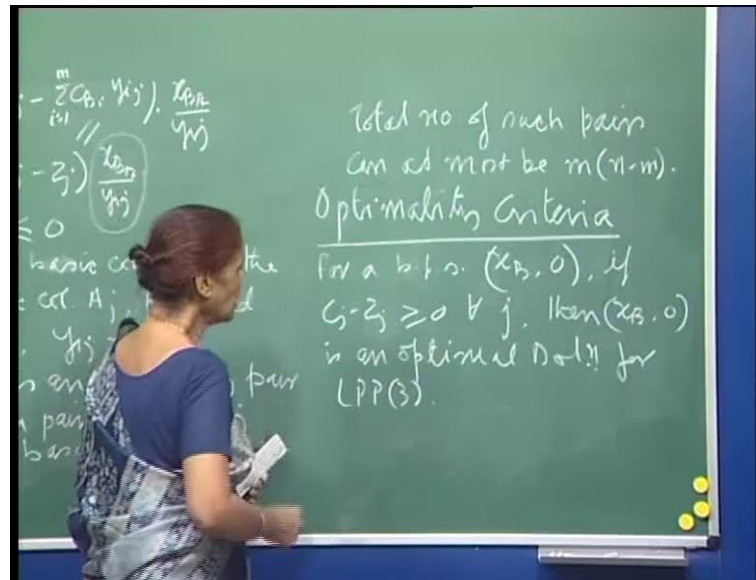 m
- Σ C_{B_i} y_{ij}) . x_{Br} / y_{rj}
i=1
- z_j) x_{Br} / y_{rj}
≤ 0
basic the
col. A_j,
y_{rj}
pair
pair
Total no of such pairs
can at most be m(n-m).
Optimality Criteria
For a b.f.s. (x_B, 0), if
c_j - z_j ≥ 0 ∀ j, then (x_B, 0)
is an optimal Sol.n for
LPP(3).